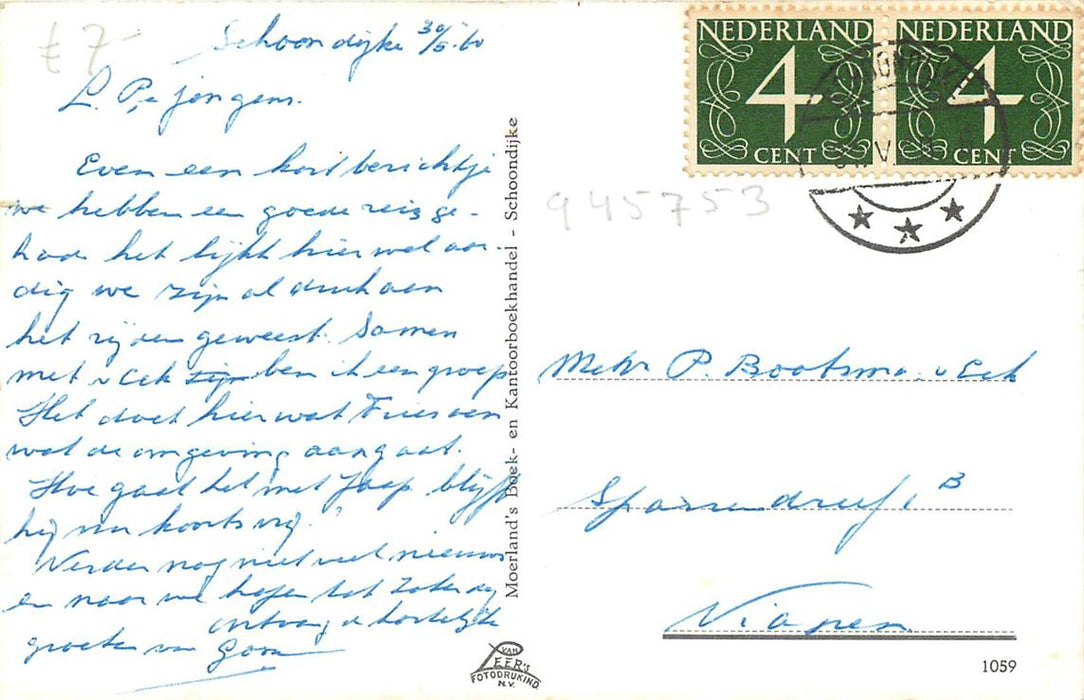 £ 7-
Schoondijke 30/5-60
L. P, e jongens.
Even een kort berichtje
we hebben een goede reis ge-
had het lijkt hier wel aar-
dig we zijn al druk aan
het rijden geweest. Samen
met v Eck zijn ben ik een groep
Het doet hier wat Fries aan
wat de omgeving aangaat.
Hoe gaat het met Jaap blijft
hij nu koorts vrij?
Verder nog niet veel nieuws
en naar we hopen tot Zaterdag
ontvang de hartelijke
groeten van
Moerland's Boek- en Kantoorboekhandel - Schoondijke
VAN
LEER'S
FOTODRUKIND.
N.V.
NEDERLAND NEDERLAND
4 4
CENT CENT
945753
P. Bootsma. v Eck
B
Vianen
1059